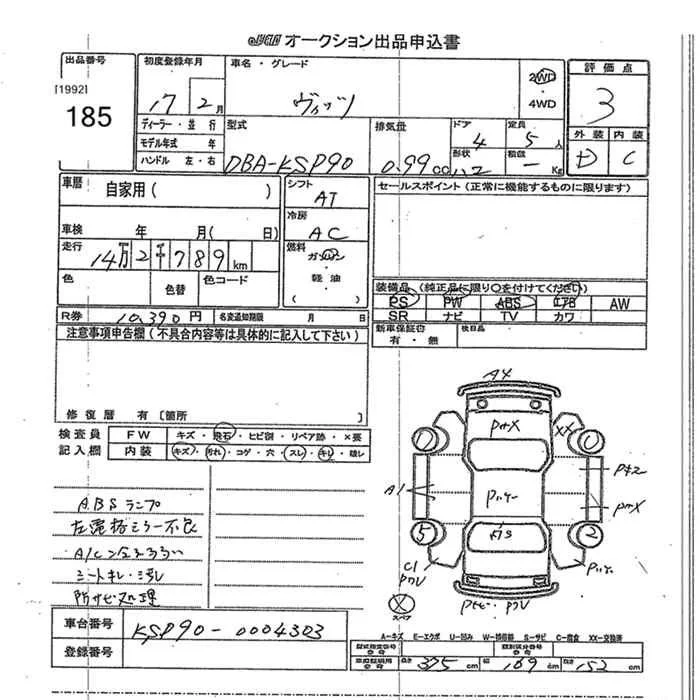 オークション出品申込書
出品番号
[1992]
185
初度登録年月
17 2月
車名・グレード
ヴィッツ
2WD・4WD
評価点
3
外装 内装
D C
ディーラー・並行
モデル年式 年
ハンドル 左・右
型式
DBA-KSP90
排気量
0.99cc
ドア
4
定員
5人
形状
ハコ
積載
- Kg
車歴 自家用( )
車検 年 月( 日)
走行
14万2千789km
色 色替 色コード
シフト
AT
冷房
AC
燃料
ガソリン
軽油
( )
セールスポイント(正常に機能するものに限ります)
装備品(純正品に限り○を付けてください)
PS PW ABS エアB AW
SR ナビ TV カワ
新車保証書 有・無
検日品
R券 10,390円 名変通知期限 月 日
注意事項申告欄(不具合内容等は具体的に記入して下さい)
修復歴 有[箇所 ]
検査員記入欄
FW キズ・飛石・ヒビ割・リペア跡・×要
内装 キズ・汚れ・コゲ・穴・スレ・キレ・破レ
ABSランプ
左電格ミラー不良
A/C
シートキレ・汚レ
防サビ処理
A4
XX
A1
5
2
スペア
車台番号 KSP90-0004303
登録番号
A-キズ E-エクボ U-凹み W-補修跡 S-サビ C-腐食 XX-交換済
長さ 375cm 幅 169cm 高さ 152cm